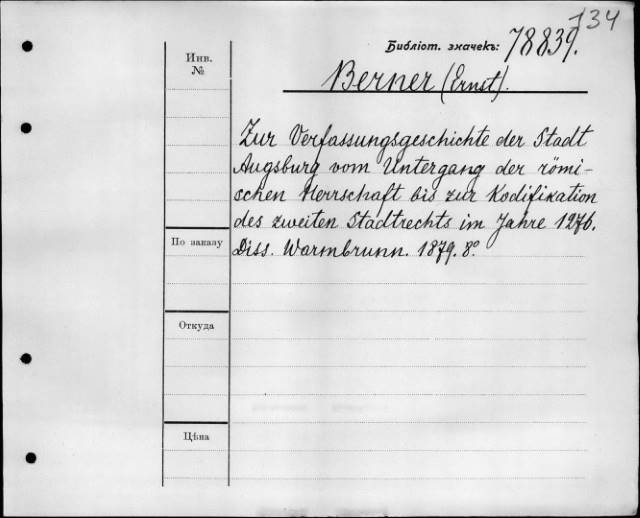 134
Библіот. значекъ: 78839.
Инв.
№
Berner (Ernst).
Zur Verfassungsgeschichte der Stadt
Augsburg vom Untergang der römi-
schen Herrschaft bis zur Kodifikation
des zweiten Stadtrechts im Jahre 1276.
По заказу
Diss. Warmbrunn. 1879. 8°
Откуда
Цѣна